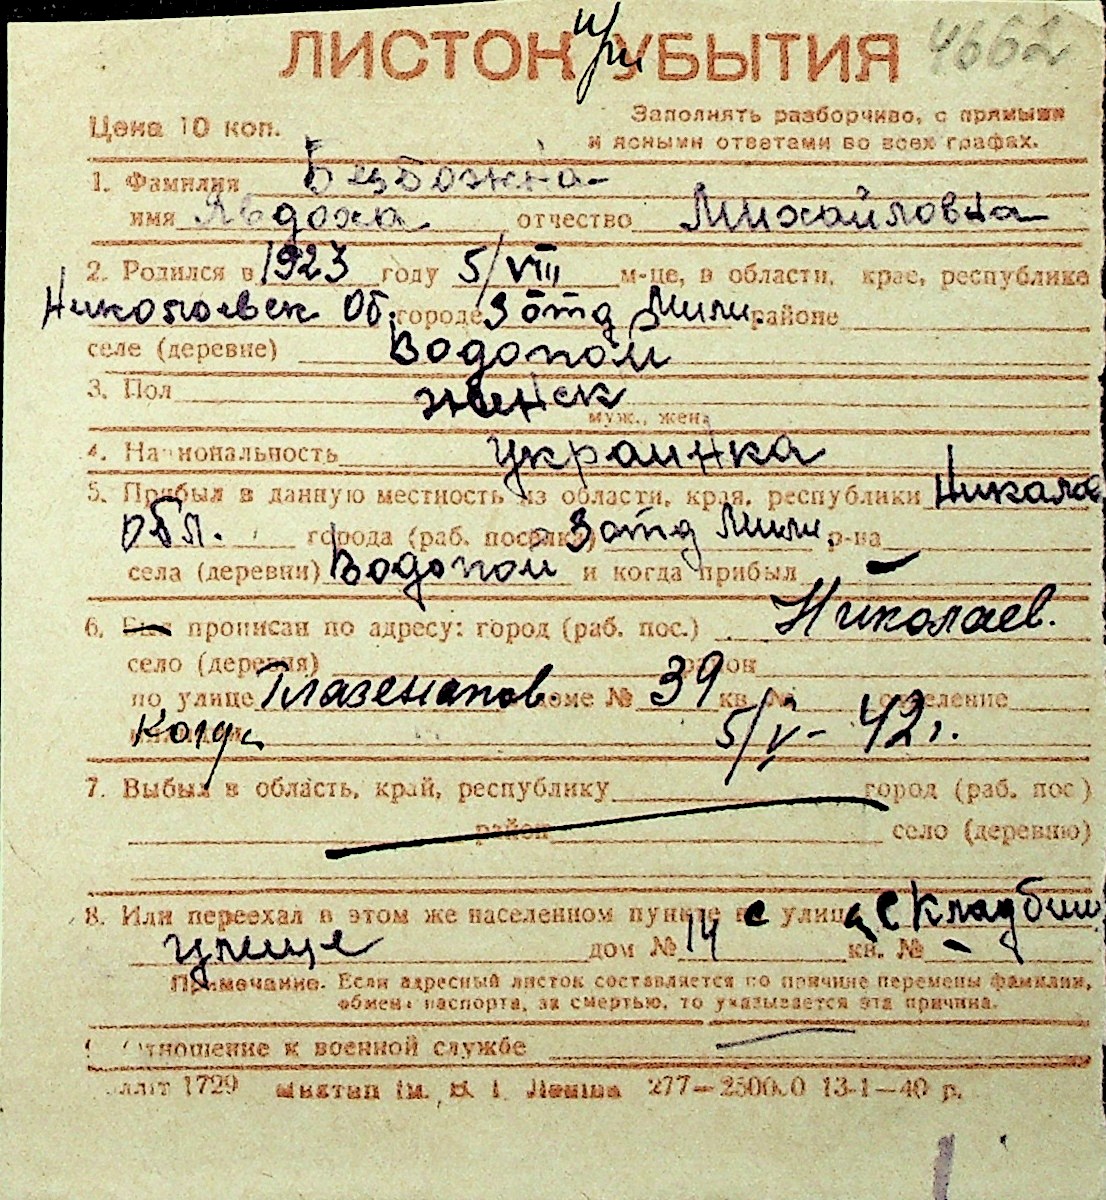 ЛИСТОК при УБЫТИЯ 4662
Цена 10 коп.
Заполнять разборчиво, с прямыми
и ясными ответами во всех графах.
1. Фамилия Безбожна
имя Явдоха отчество Михайловна
2. Родился в 1923 году 5/VIII м-це, в области, крае, республике
Николаевск Об. городе 3 отд Мили. районе
селе (деревне) Водопой
3. Пол женск
муж., жен.
4. Национальность украинка
5. Прибыл в данную местность из области, края, республики Никалае
обл. города (раб. поселка) 3 отд Мили. р-на
села (деревни) Водопой и когда прибыл –
6. Был прописан по адресу: город (раб. пос.) Николаев.
село (деревня) район
по улице Глазенапов доме № 39 кв. № отделение
Когда 5/V- 42 г.
7. Выбыл в область, край, республику город (раб. пос)
район село (деревню)
8. Или переехал в этом же населенном пункте с улицы с Кладбищ
улице дом № 14 кв. № -
Примечание. Если адресный листок составляется по причине перемены фамилии,
обмена паспорта, за смертью, то указывается эта причина.
Отношение к военной службе
1729 им. В. І. Леніна 277— 13-1—40 р.